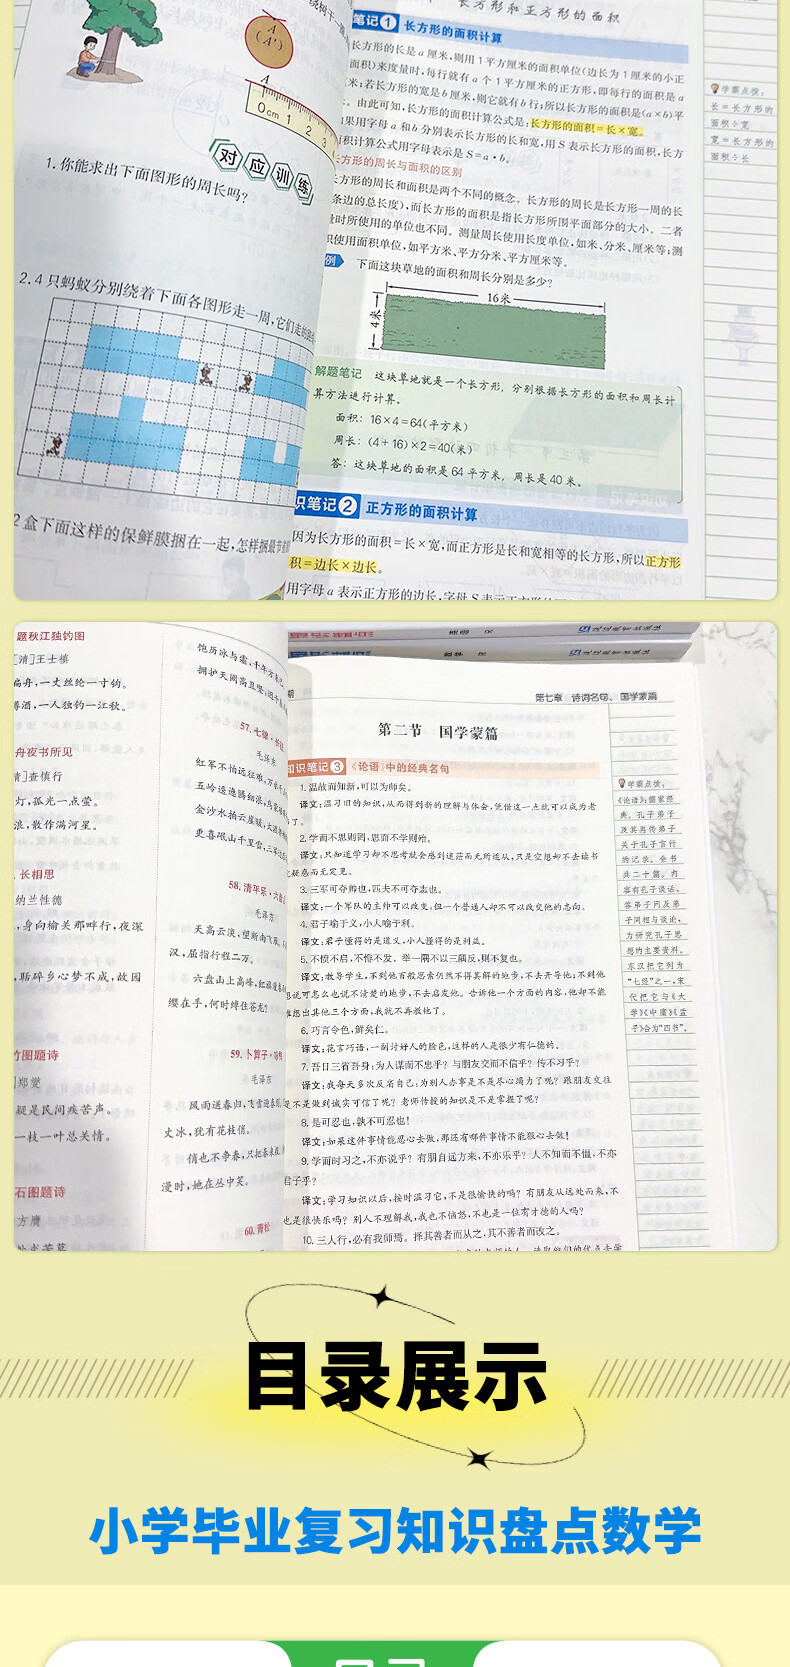 长方形和正方形的面积
A
(A')
A
0cm 1 2 3
对应训练
1.你能求出下面图形的周长吗?
2.4只蚂蚁分别绕着下面各图形走一周,它们走的路
2盒下面这样的保鲜膜捆在一起,怎样捆最节省
笔记1 长方形的面积计算
长方形的长是a厘米,则用1平方厘米的面积单位(边长为1厘米的小正
面积)来度量时,每行就有a个1平方厘米的正方形,即每行的面积是a
米;若长方形的宽是b厘米,则它就有b行;所以长方形的面积是(a×b)平
由此可知,长方形的面积计算公式是:长方形的面积=长×宽。
果用字母a和b分别表示长方形的长和宽,用S表示长方形的面积,长方
面积计算公式用字母表示是S=a·b。
长方形的周长与面积的区别
方形的周长和面积是两个不同的概念。长方形的周长是长方形一周的长
条边的总长度),而长方形的面积是指长方形所围平面部分的大小。二者
量时所使用的单位也不同。测量周长使用长度单位,如米、分米、厘米等;测
使用面积单位,如平方米、平方分米、平方厘米等。
例 下面这块草地的面积和周长分别是多少?
16米
4米
解题笔记 这块草地就是一个长方形,分别根据长方形的面积和周长计
算方法进行计算。
面积:16×4=64(平方米)
周长:(4+16)×2=40(米)
答:这块草地的面积是64平方米,周长是40米。
识笔记2 正方形的面积计算
因为长方形的面积=长×宽,而正方形是长和宽相等的长方形,所以正方形
积=边长×边长。
用字母a表示正方形的边长,字母S表示正方形
学霸点拨:
长=长方形的
面积÷宽
宽=长方形的
面积÷长
题秋江独钓图
[清]王士禛
扁舟,一丈丝纶一寸钩。
樽酒,一人独钓一江秋。
舟夜书所见
清]查慎行
灯,孤光一点萤。
浪,散作满河星。
长相思
纳兰性德
,身向榆关那畔行,夜深
,聒碎乡心梦不成,故园
竹图题诗
]郑燮
疑是民间疾苦声。
一枝一叶总关情。
石图题诗
方膺
饱历冰与霜,千年方
拥护天阙高且坚,迥
57.七律·长征
毛泽东
红军不怕远征难,万水
五岭逶迤腾细浪,乌蒙
金沙水拍云崖暖,大渡
更喜岷山千里雪,三军
58.清平乐·六盘
毛泽东
天高云淡,望断南飞雁。
汉,屈指行程二万。
六盘山上高峰,红旗漫卷
缨在手,何时缚住苍龙?
59.卜算子·咏梅
毛泽东
风雨送春归,飞雪迎春
丈冰,犹有花枝俏。
俏也不争春,只把春来
漫时,她在丛中笑。
60.青松
第七章 诗词名句、国学蒙篇
第二节 国学蒙篇
知识笔记3 《论语》中的经典名句
1.温故而知新,可以为师矣。
译文:温习旧的知识,从而得到新的理解与体会,凭借这一点就可以成为老
了。
2.学而不思则罔,思而不学则殆。
译文:只知道学习却不思考就会感到迷茫而无所适从,只是空想却不去读书
疑惑而无定见。
3.三军可夺帅也,匹夫不可夺志也。
译文:一个军队的主帅可以改变,但一个普通人却不可以改变他的志向。
4.君子喻于义,小人喻于利。
译文:君子懂得的是道义,小人懂得的是利益。
5.不愤不启,不悱不发。举一隅不以三隅反,则不复也。
译文:教导学生,不到他百般思索仍然不得其解的地步,不去开导他;不到他
想说可怎么也说不清楚的地步,不去启发他。告诉他一个方面的内容,他却不能
推想出其他三个方面,我就不再教他了。
6.巧言令色,鲜矣仁。
译文:花言巧语,一副讨好人的脸色,这样的人是很少有仁德的。
7.吾日三省吾身:为人谋而不忠乎?与朋友交而不信乎?传不习乎?
译文:我每天多次反省自己:为别人办事是不是尽心竭力了呢?跟朋友交往
是不是做到诚实可信了呢?老师传授的知识是不是掌握了呢?
8.是可忍也,孰不可忍也!
译文:如果这件事情能忍心去做,那还有哪件事情不能狠心去做!
9.学而时习之,不亦说乎?有朋自远方来,不亦乐乎?人不知而不愠,不亦
君子乎?
译文:学习知识以后,按时温习它,不是很愉快的吗?有朋友从远处而来,不
也是很快乐吗?别人不理解我,我也不恼怒,不也是一位有才德的人吗?
10.三人行,必有我师焉。择其善者而从之,其不善者而改之。
学霸点拨:
《论语》:儒家经
典,孔子弟子
及其再传弟子
关于孔子言行
的记录。全书
共二十篇。内
容有孔子谈话、
答弟子问及弟
子间相与谈论,
为研究孔子思
想的主要资料。
东汉把它列为
“七经”之一,宋
代把它与《大
学》《中庸》《孟
子》合为“四书”。
目录展示
小学毕业复习知识盘点数学